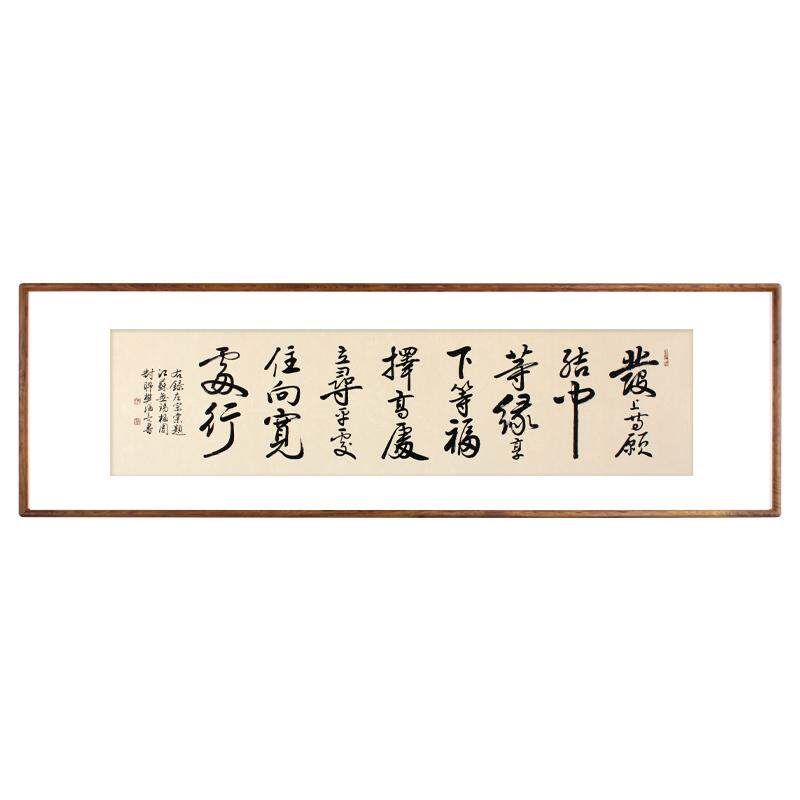 發上等願
結中
等緣享
下等福
擇高處
立尋平處
住向寬
處行
右錄左宗棠題
江蘇無錫梅園
對聯